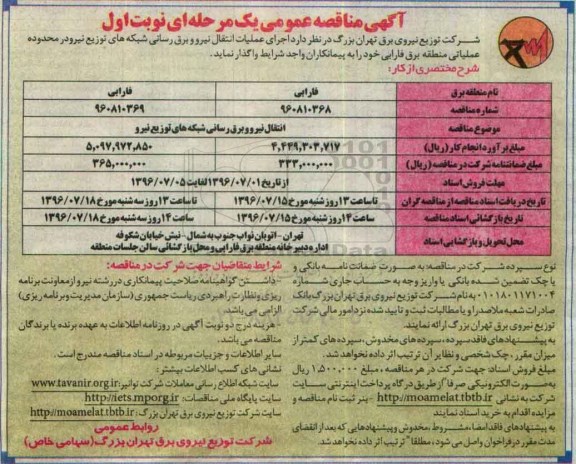 آگهی مناقصه عمومی یک مرحله ای نوبت اول
شرکت توزیع نیروی برق تهران بزرگ در نظر دارد اجرای عملیات انتقال نیرو و برق رسانی شبکه های توزیع نیرو در محدوده
عملیاتی منطقه برق فارابی خود را به پیمانکاران واجد شرایط واگذار نماید.
شرح مختصری از کار:
نام منطقه برق فارابی فارابی
شماره مناقصه ۹۶۰۸۱۰۳۶۸ ۹۶۰۸۱۰۳۶۹
موضوع مناقصه انتقال نیرو و برق رسانی شبکه های توزیع نیرو
مبلغ برآورد انجام کار (ریال) ۴,۴۴۹,۳۰۳,۷۱۷ ۵,۰۹۷,۹۷۲,۸۵۰
مبلغ ضمانتنامه شرکت در مناقصه (ریال) ۳۳۳,۰۰۰,۰۰۰ ۳۶۵,۰۰۰,۰۰۰
مهلت فروش اسناد از تاریخ ۱۳۹۶/۰۷/۰۱ لغایت ۱۳۹۶/۰۷/۰۵
تاریخ دریافت اسناد مناقصه از مناقصه گران تا ساعت ۱۳ روز شنبه مورخ ۱۳۹۶/۰۷/۱۵ تا ساعت ۱۳ روز سه شنبه مورخ ۱۳۹۶/۰۷/۱۸
تاریخ بازگشائی اسناد مناقصه ساعت ۱۴ روز شنبه مورخ ۱۳۹۶/۰۷/۱۵ ساعت ۱۴ روز سه شنبه مورخ ۱۳۹۶/۰۷/۱۸
محل تحویل و بازگشایی اسناد تهران - اتوبان نواب جنوب به شمال - نبش خیابان شکوفه
اداره دبیرخانه منطقه برق فارابی و محل بازگشائی سالن جلسات منطقه
نوع سپرده شرکت در مناقصه: به صورت ضمانت نامه بانکی و
یا چک تضمین شده بانکی یا واریز وجه به حساب جاری شماره
۰۱۰۱۸۰۱۱۷۱۰۰۴ به نام شرکت توزیع نیروی برق تهران بزرگ بانک
صادرات شعبه ملاصدرا و یا مطالبات ثبت و تایید شده نزد امور مالی شرکت
توزیع نیروی برق تهران بزرگ ارائه نمایند.
به پیشنهادهای فاقد سپرده، سپرده های مخدوش، سپرده های کمتر از
میزان مقرر، چک شخصی و نظایر آن ترتیب اثر داده نخواهد شد.
مبلغ فروش اسناد: جهت شرکت در هر مناقصه، مبلغ ۱,۵۰۰,۰۰۰ ریال
به صورت الکترونیکی صرفا از طریق درگاه پرداخت اینترنتی سایت
شرکت به نشانی http://moamelat.tbtb.ir - بنر ثبت نام مناقصه و
مزایده اقدام به خرید اسناد نمایند
به پیشنهادهای فاقد امضاء، مشروط، مخدوش و پیشنهادهایی که بعد از انقضای
مدت مقرر در فراخوان واصل می شود، مطلقا" ترتیب اثر داده نخواهد شد.
شرایط متقاضیان جهت شرکت در مناقصه:
- داشتن گواهینامه صلاحیت پیمانکاری در رشته نیرو از معاونت برنامه
ریزی و نظارت راهبردی ریاست جمهوری (سازمان مدیریت و برنامه ریزی)
الزامی می باشد.
- هزینه درج دو نوبت آگهی در روزنامه اطلاعات به عهده برنده یا برندگان
مناقصه می باشد.
سایر اطلاعات و جزییات مربوطه در اسناد مناقصه مندرج است.
نشانی های کسب اطلاعات بیشتر:
سایت شبکه اطلاع رسانی معاملات شرکت توانیر: www.tavanir.org.ir
سایت پایگاه ملی مناقصات: http://iets.mporg.ir
سایت شرکت توزیع نیروی برق تهران بزرگ: http://moamelat.tbtb.ir
روابط عمومی
شرکت توزیع نیروی برق تهران بزرگ (سهامی خاص)